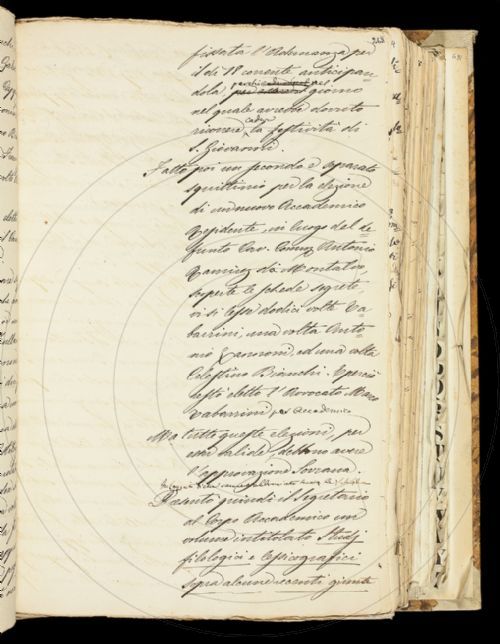 268
fissata l'Adunanza per
il dì 18 corrente anticipan
dola, giorno
nel quale avrebbe dovuto
ricorrere, la festività di
S. Giovanni.
Fatto poi un secondo e separato
squittinio per la elezione
di un nuovo Accademico
Residente, in luogo del de
funto Cav. Comm. Antonio
Ramirez di Montalvo,
aperte le schede segrete,
vi si lesse dodici volte Ta
barrini, una volta Anto
nio Zannoni, ed una volta
Celestino Bianchi. Perciò
restò eletto l'Avvocato Marco
Tabarrini per Accademico
Ma tutte queste elezioni, per
esser valide, debbono avere
l'approvazione Sovrana.
Presentò quindi il Segretario
al Corpo Accademico un
volume intitolato Studj
filologici e lessicografici
sopra alcune recenti giunte